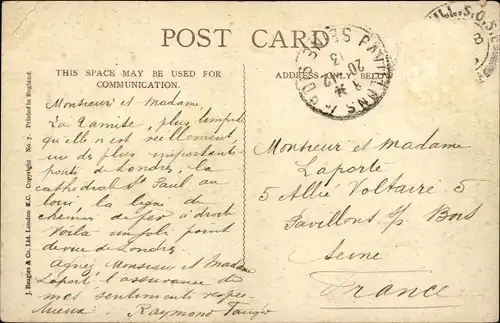 POST CARD
THIS SPACE MAY BE USED FOR
COMMUNICATION.
ADDRESS ONLY BELOW
J. Beagles & Co., Ltd. London E.C. Copyright No. 7. Printed in England.
Monsieur et Madame,
La Tamise, plus limpide
qu'elle n'est réellement,
un des plus importants
ponts de Londres, la
cathédral St Paul au
loin, la ligne de
chemins de fer à droite
Voila un joli point
de vue de Londres.
Agréez Monsieur et Madame
Laporte l'assurance de
mes sentiments respec-
tueux. Raymond
Monsieur et Madame
Laporte
5 Allée Voltaire 5
Pavillons s/s Bois
Seine
France